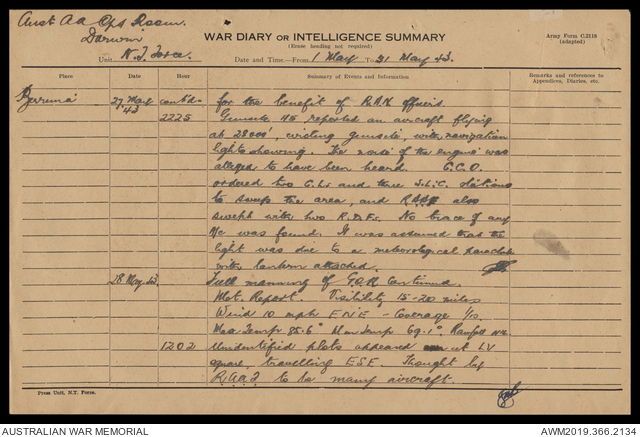 Aust Aa Ops Room.
Darwin
Unit N.T. Force.
WAR DIARY OR INTELLIGENCE SUMMARY
(Erase heading not required)
Date and Time—From 1 May to 31 May 43.
Army Form C.2118
(adapted)
Place Date Hour Summary of Events and Information Remarks and references to
Appendices, Diaries, etc.
Berrima 27 May 43 contd. for the benefit of R.A.N officers.
2225 Gunsite 115 reported an aircraft flying
at 28000', circling gunsite, with navigation
lights showing. The noise of the engine was
alleged to have been heard. G.C.O.
ordered two C.Ls and three S.L.C. stations
to sweep the area, and RAAF also
swept with two R.D.Fs. No trace of any
a/c was found. It was assumed that the
light was due to a meteorological parachute
with lantern attached.
28 May 43. Full manning of G.O.R continued.
Met. Report. Visibility 15-20 miles
Wind 10 mph ENE - Coverage 1/10.
Max Temp 85.6° Min Temp 69.1°. Rainfall Nil
1202 Unidentified plots appeared at LV
square, travelling ESE. Thought by
R.A.A.F to be many aircraft.
Press Unit, N.T. Force.
AUSTRALIAN WAR MEMORIAL
AWM2019.366.2134